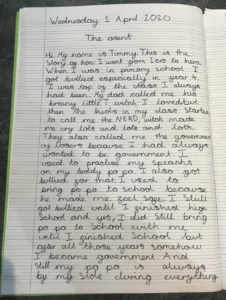 Wednesday 1 April 2020
The asent
Hi. My name is Timmy. This is the
story of how I went from loss to hero.
When I was in primary school I
got bullied especially in year 4.
I was top of the class I always
had been. My dad called me his
brainy little I loved but
then the kids in my class started
to call me the NERD, witch made
me cry lots and lots and lots.
They also called me the government
of losers because I had always
wanted to be government I
used to practise my speachs
on my teddy po po. I also got
bullied for that I used to
bring po po to school because
he made me feel safe. I still
got bullied until I finished high
School and yes, I did still bring
po po to School with me
until I finished School but
after all those years somehow
I became government And
still my po po is always
by my side during everything